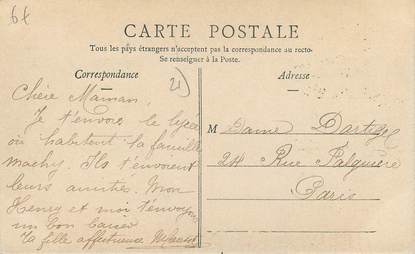 6€
CARTE POSTALE
Tous les pays étrangers n'acceptent pas la correspondance au recto-
Se renseigner à la Poste.
Correspondance
Adresse
21
Chère Maman,
Je t'envoie le lycée
où habitent la famille
Machy. Ils t'envoient
leurs amitiés. Mon
Henry et moi t'envoyons
un bon baiser
Ta fille affectueuse
M Dame Dartige
24 Rue Falguière
Paris